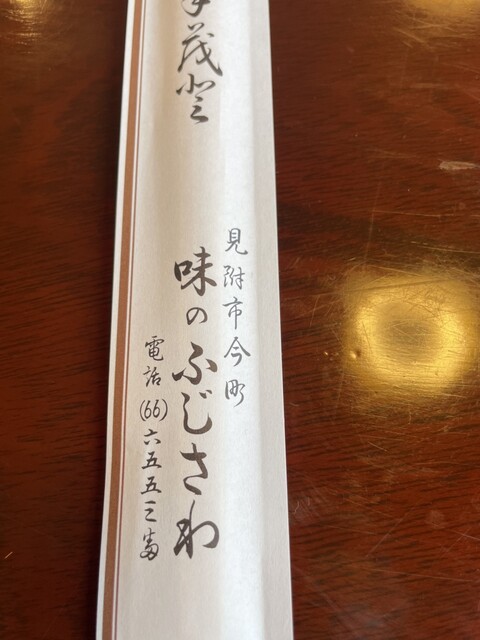 茂登
見附市今町
味のふじさわ
電話(66)六五五三番